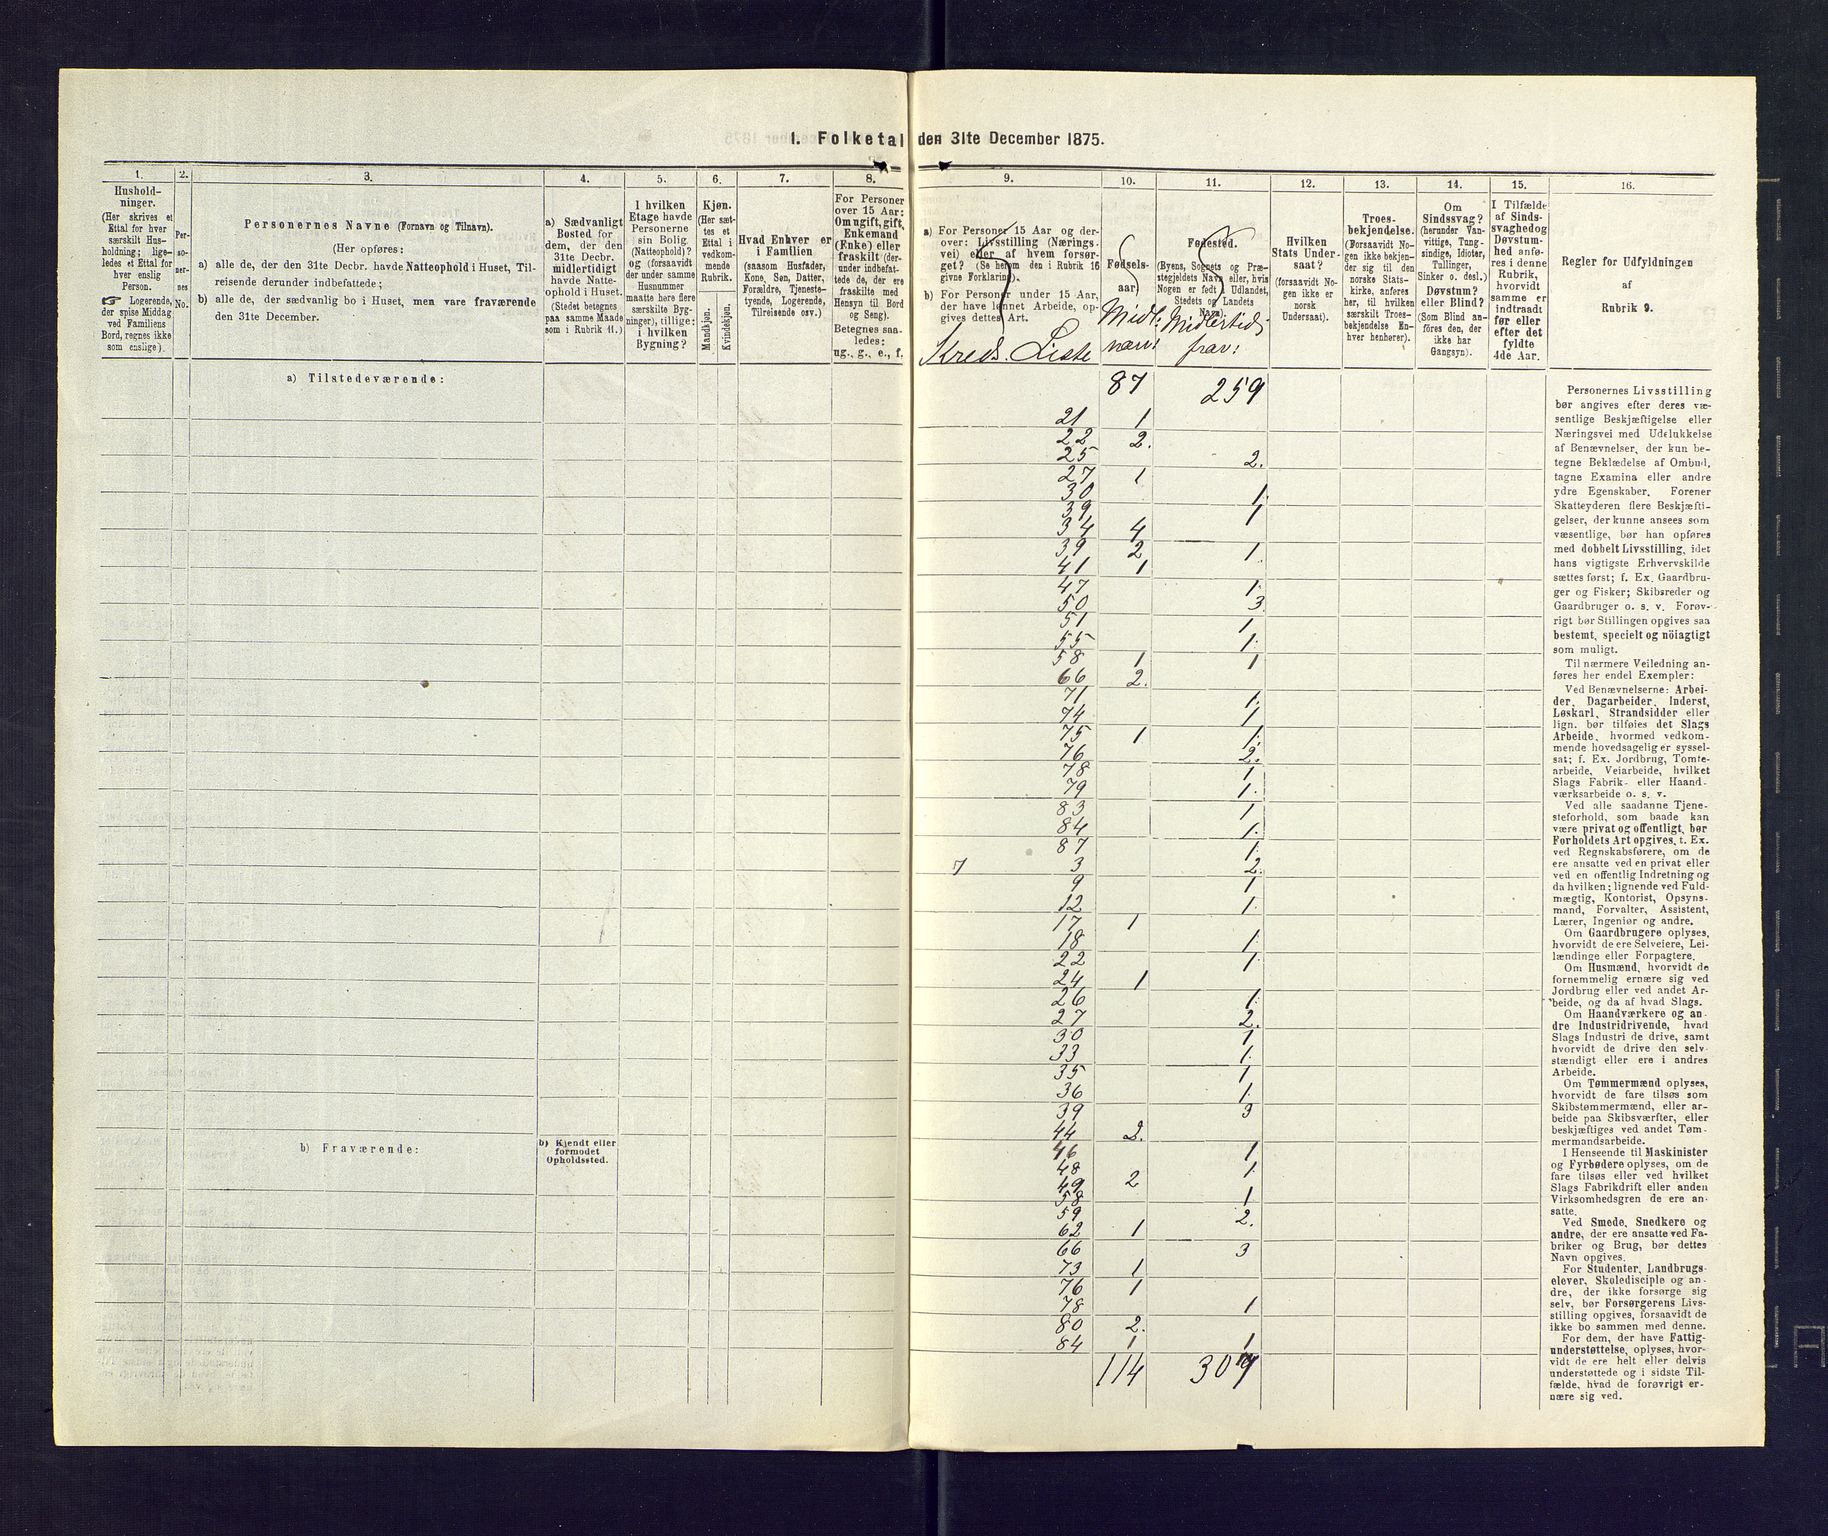 1. Folketal den 31te December 1875.
1.
Hushold-
ninger.
(Her skrives et
Ettal for hver
særskilt Hus-
holdning; lige-
ledes et Ettal for
hver enslig
Person.
☞ Logerende,
der spise Middag
ved Familiens
Bord, regnes ikke
som enslige).
2.
Per-
so-
ner-
nes
No.
3.
Personernes Navne (Fornavn og Tilnavn).
(Her opføres:
a) alle de, der den 31te Decbr. havde Natteophold i Huset, Til-
reisende derunder indbefattede;
b) alle de, der sædvanlig bo i Huset, men vare fraværende
den 31te December.
4.
a) Sædvanligt
Bosted for
dem, der den
31te Decbr.
midlertidigt
havde Natte-
ophold i Huset.
(Stedet betegnes
paa samme Maade
som i Rubrik 11.)
5.
I hvilken
Etage havde
Personerne
sin Bolig,
(Natteophold)?
og (forsaavidt
der under samme
Husnummer
maatte høre flere
særskilte Byg-
ninger), tillige:
i hvilken
Bygning?
6.
Kjøn.
(Her sæt-
tes et
Ettal i
vedkom-
mende
Rubrik.
Mandkjøn.
Kvindekjøn.
7.
Hvad Enhver er
i Familien
(saasom Husfader,
Kone, Søn, Datter,
Forældre, Tjeneste-
tyende, Logerende,
Tilreisende osv.)
8.
For Personer
over 15 Aar:
Om ugift, gift,
Enkemand
(Enke) eller
fraskilt (der-
under indbefat-
tede, der ere
fraskilte med
Hensyn til Bord
og Seng).
Betegnes saa-
ledes:
ug., g., e., f.
9.
a) For Personer 15 Aar og der-
over: Livsstilling (Nærings-
vei) eller af hvem forsør-
get? (Se herom den i Rubrik 16
givne Forklaring).
b) For Personer under 15 Aar,
der have lønnet Arbeide, op-
gives dettes Art.
Kreds. Liste
10.
Fødsels-
aar.
Midl:
nærv:
11.
Fødested.
(Byens, Sognets og Præ-
stegjeldets Navn eller, hvis
Nogen er født i Udlandet,
Stedets og Landets
Navn).
Midlertid:
frav:
12.
Hvilken
Stats Under-
saat?
(forsaavidt No-
gen ikke er
norsk
Undersaat).
13.
Troes-
bekjendelse.
(Forsaavidt No-
gen ikke bekjen-
der sig til den
norske Stats-
kirke, anføres
her, til hvilken
særskilt Troes-
bekjendelse En-
hver henhører).
14.
Om
Sindssvag?
(herunder Van-
vittige, Tung-
sindige, Idioter,
Tullinger,
Sinker o. desl.)
Døvstum?
eller Blind?
(Som Blind an-
føres den, der
ikke har
Gangsyn).
15.
I Tilfælde
af Sinds-
svaghed og
Døvstum-
hed anfø-
res i denne
Rubrik,
hvorvidt
samme er
indtraadt
før eller
efter det
fyldte
4de Aar.
16.
Regler for Udfyldningen
af
Rubrik 9.
a) Tilstedeværende:
87 259
21 1
22 2.
25 2.
27 1
30 1.
39 1
34 4
39 2 1.
41 1
47 1.
50 3.
51 1
55 1.
58 1 1
66 2.
71 1.
74 1
75 1 1.
76 2.
78 1
79 1.
83 1
84 1.
87 1.
7 3 2.
9 1
12 1.
17 1
18 1.
22 1.
24 1
26 1.
27 2.
30 1
33 1.
35 1
36 1.
39 3
44 2.
46 1
48 1.
49 2
58 1
59 2.
62 1
66 3
73 1
76 1
78 1
80 2.
84 1 1
114 309
b) Fraværende:
b) Kjendt eller
formodet
Opholdssted.
Personernes Livsstilling
bør angives efter deres væ-
sentlige Beskjæftigelse eller
Næringsvei med Udelukkelse
af Benævnelser, der kun be-
tegne Beklædelse af Ombud,
tagne Examina eller andre
ydre Egenskaber. Forener
Skatteyderen flere Beskjæfti-
gelser, der kunne ansees som
væsentlige, bør han opføres
med dobbelt Livsstilling, idet
hans vigtigste Erhvervskilde
sættes først; f. Ex. Gaardbru-
ger og Fisker; Skibsreder og
Gaardbruger o. s. v. Forøv-
rigt bør Stillingen opgives saa
bestemt, specielt og nöiagtigt
som muligt.
Til nærmere Veiledning an-
føres her endel Exempler:
Ved Benævnelserne: Arbei-
der, Dagarbeider, Inderst,
Løskarl, Strandsidder eller
lign. bør tilføies det Slags
Arbeide, hvormed vedkom-
mende hovedsagelig er syssel-
sat; f. Ex. Jordbrug, Tomte-
arbeide, Veiarbeide, hvilket
Slags Fabrik- eller Haand-
værksarbeide o. s. v.
Ved alle saadanne Tjene-
steforhold, som baade kan
være privat og offentligt, bør
Forholdets Art opgives, t. Ex.
ved Regnskabsførere, om de
ere ansatte ved en privat eller
ved en offentlig Indretning og
da hvilken; lignende ved Fuld-
mægtig, Kontorist, Opsyns-
mand, Forvalter, Assistent,
Lærer, Ingeniør og andre.
Om Gaardbrugere oplyses,
hvorvidt de ere Selveiere, Lei-
lændinge eller Forpagtere.
Om Husmænd, hvorvidt de
fornemmelig ernære sig ved
Jordbrug eller ved andet Ar-
beide, og da af hvad Slags.
Om Haandværkere og an-
dre Industridrivende, hvad
Slags Industri de drive, samt
hvorvidt de drive den selv-
stændigt eller ere i andres
Arbeide.
Om Tømmermænd oplyses,
hvorvidt de fare tilsøs som
Skibstømmermænd, eller ar-
beide paa Skibsværfter, eller
beskjæftiges ved andet Tøm-
mermandsarbeide.
I Henseende til Maskinister
og Fyrbødere oplyses, om de
fare tilsøs eller ved hvilket
Slags Fabrikdrift eller anden
Virksomhedsgren de ere an-
satte.
Ved Smede, Snedkere og
andre, der ere ansatte ved Fa-
briker og Brug, bør dettes
Navn opgives.
For Studenter, Landbrugs-
elever, Skoledisciple og an-
dre, der ikke forsørge sig
selv, bør Forsørgerens Livs-
stilling opgives, forsaavidt de
ikke bo sammen med denne.
For dem, der have Fattig-
understøttelse, oplyses, hvor-
vidt de ere helt eller delvis
understøttede og i sidste Til-
fælde, hvad de forøvrigt er-
nære sig ved.